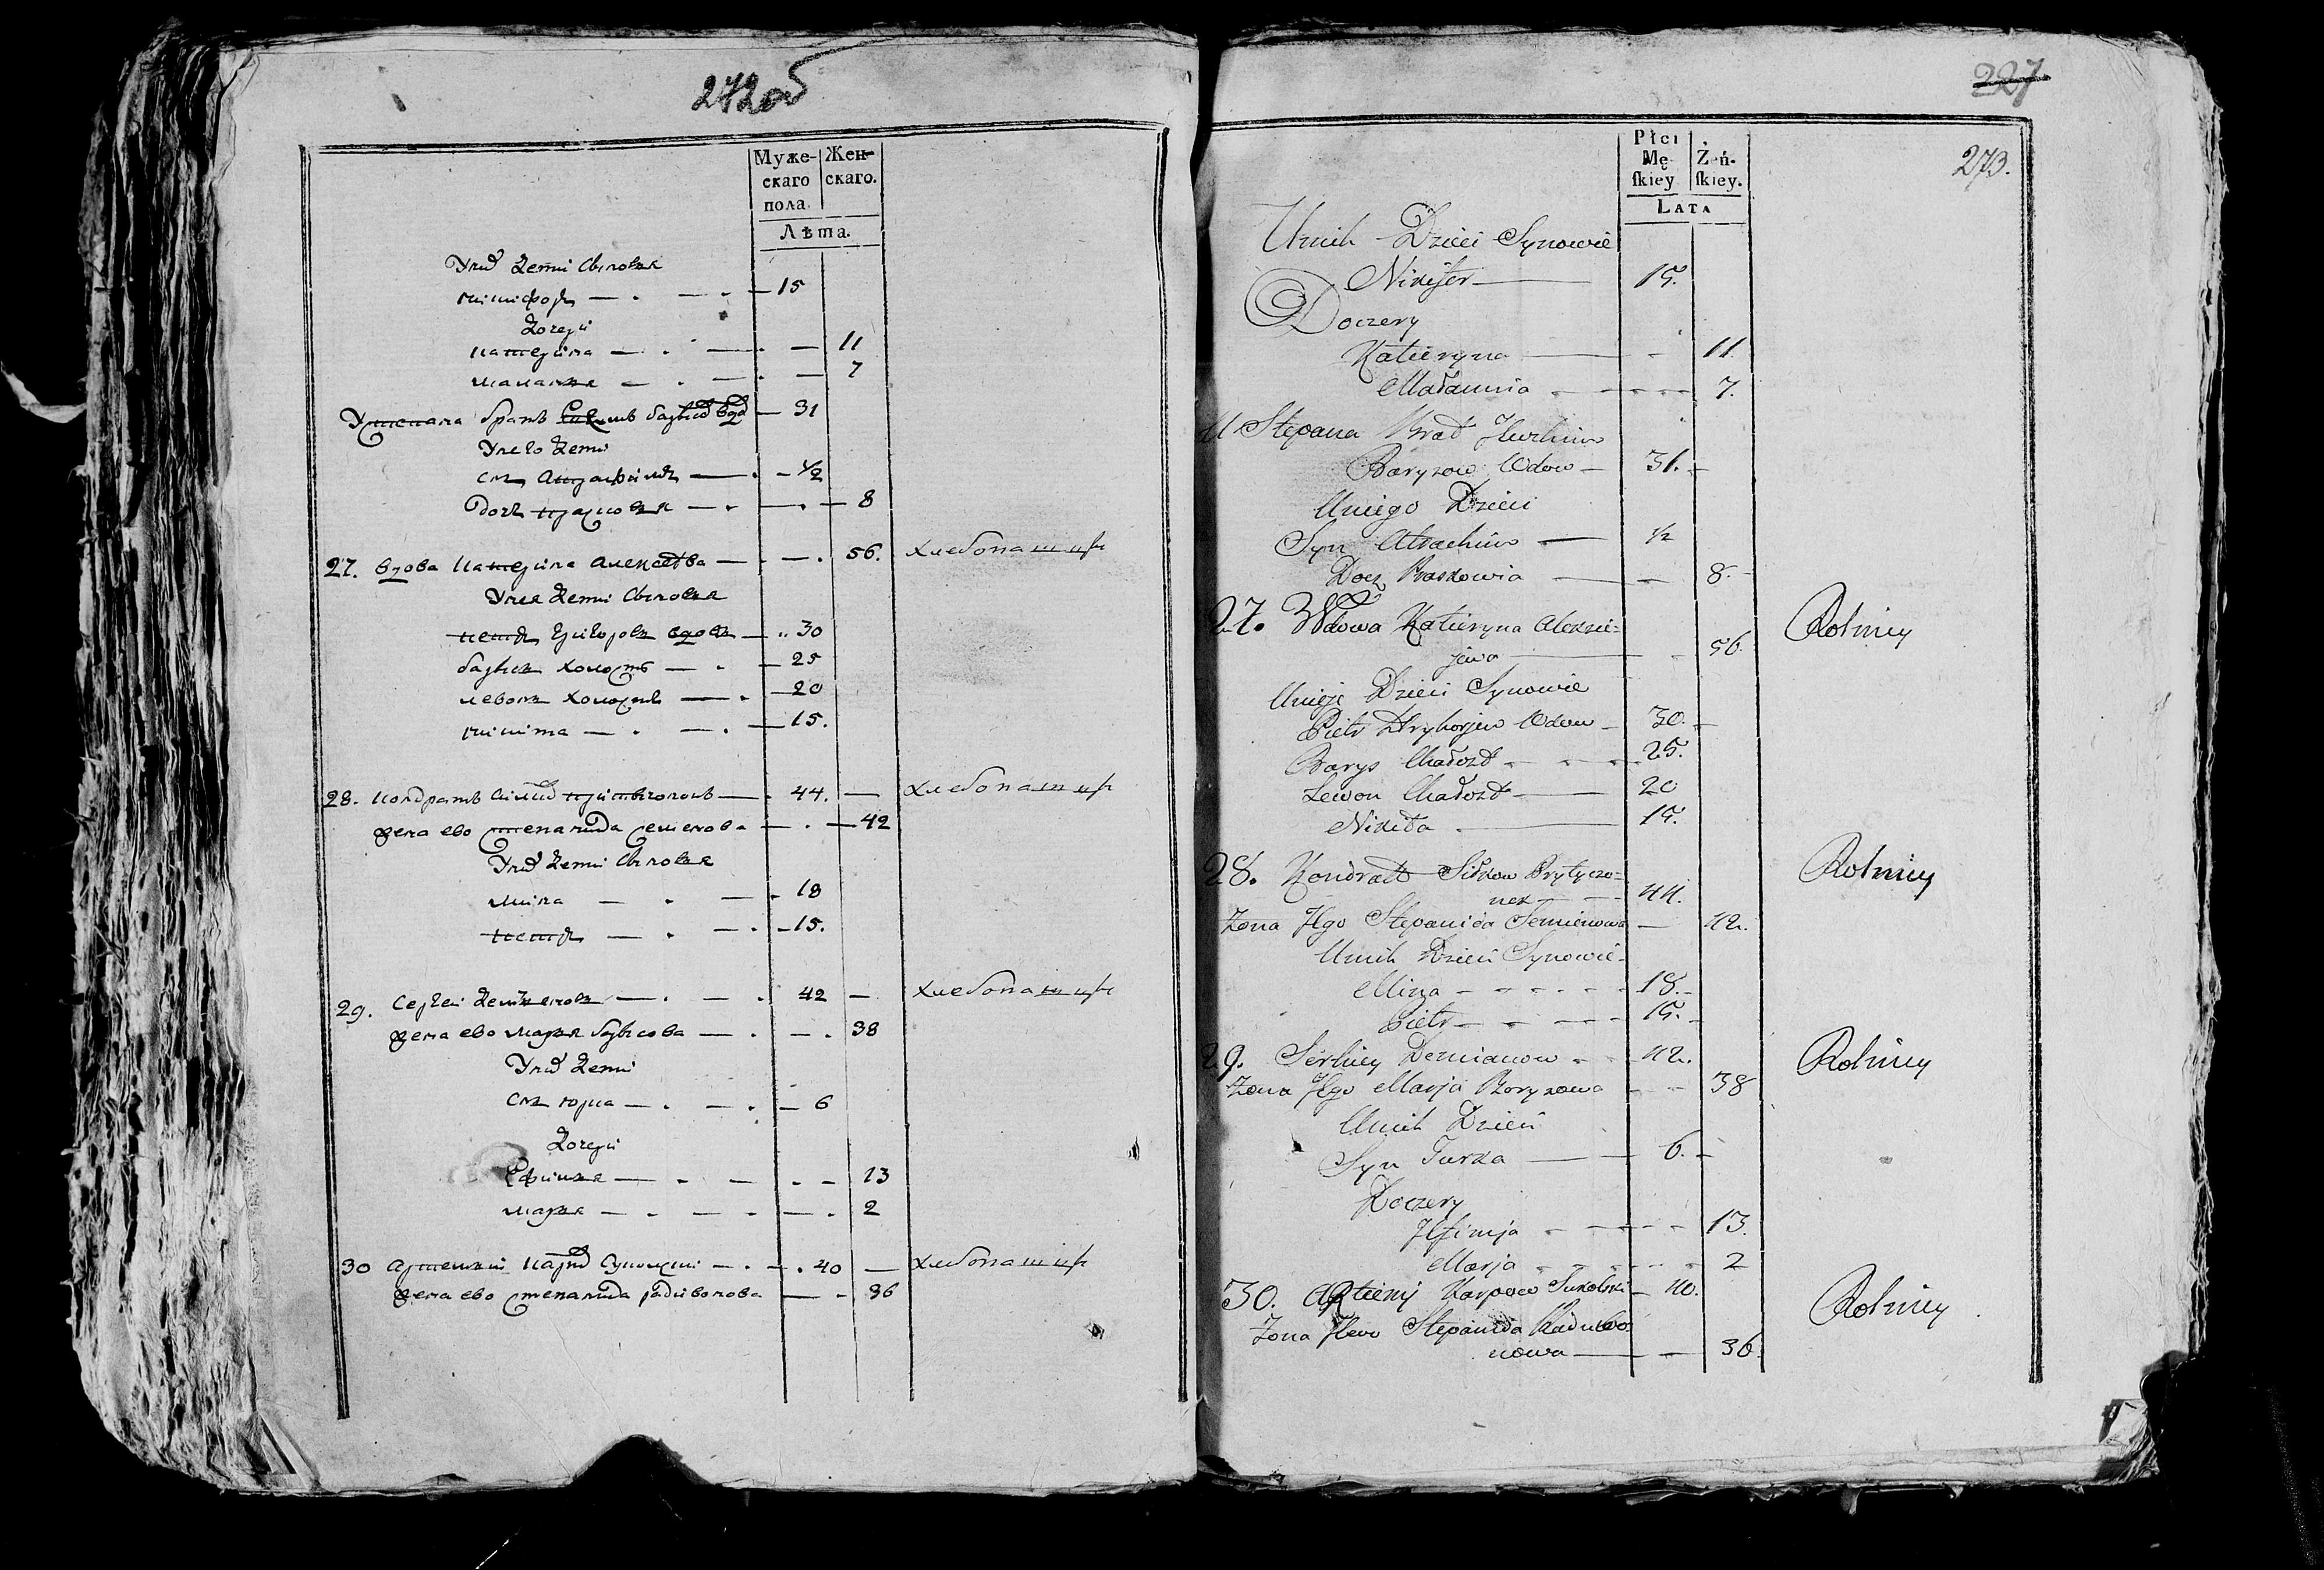 272об
Муже- Жен-
скаго скаго.
пола.
Лѣта.
У них Дети Сыновья
никифоръ — 15
Дочери
катерина — 11
маланья — 7
У степана братъ борисов вдов — 31
У него Дети
сын — ½
дочь прасковья — 8
27. вдова катерина алексеева — 56. хлебопашцы
У нея Дети Сыновья
петръ григоровъ вдовъ — 30
борисъ холостъ — 25
левонъ холостъ — 20
никита — 15.
28. кондратъ притычонокъ — 44. — хлебопашцы
жена ево степанида семенова — 42
У них Дети Сыновья
мина — 18
петръ — 15.
29. Сергей Демьяновъ — 42 — хлебопашцы
жена ево марья борисова — 38
У них Дети
сынъ юрка — 6
Дочери
Ефимья — 13
марья — 2
30 артемий карпов — 40 — хлебопашцы
жена ево степанида радивонова — 36
227
273.
Płci
Mę- Żeń-
ſkiey ſkiey.
LATA
Unich Dzieci Synowie
Nikifer — 15.
Doczery
Katieryna — 11.
Małannia — 7.
U Stepana Brat
Boryzow Wdow — 31.
Uniego Dzieci
Syn — ½
Docz Praskowia — 8.
27. Wdowa Katieryna Alexie= Rolnicy
jewa — 56.
Unieje Dzieci Synowie
Pietr Hryhorjew Wdow — 30.
Borys Chałost — 25.
Lewon Chałost — 20
Nikita — 15.
28. Kondrat Siłkow Prytyczo= Rolnicy
nek — 44.
Żona Jego Stepanida Semienowa — 42.
Unich Dzieci Synowie
Mina — 18.
Pietr — 15.
29. Serhiey Demianow — 42. Rolnicy
Żona Jego Marja Boryzowa — 38
Unich Dzieci
Syn Jurka — 6.
Doczery
Jefimja — 13.
Marja — 2
30. Artiemij Karpow — 40. Rolnicy
Żona Jewo Stepanida Radiwo=
nowa — 36.